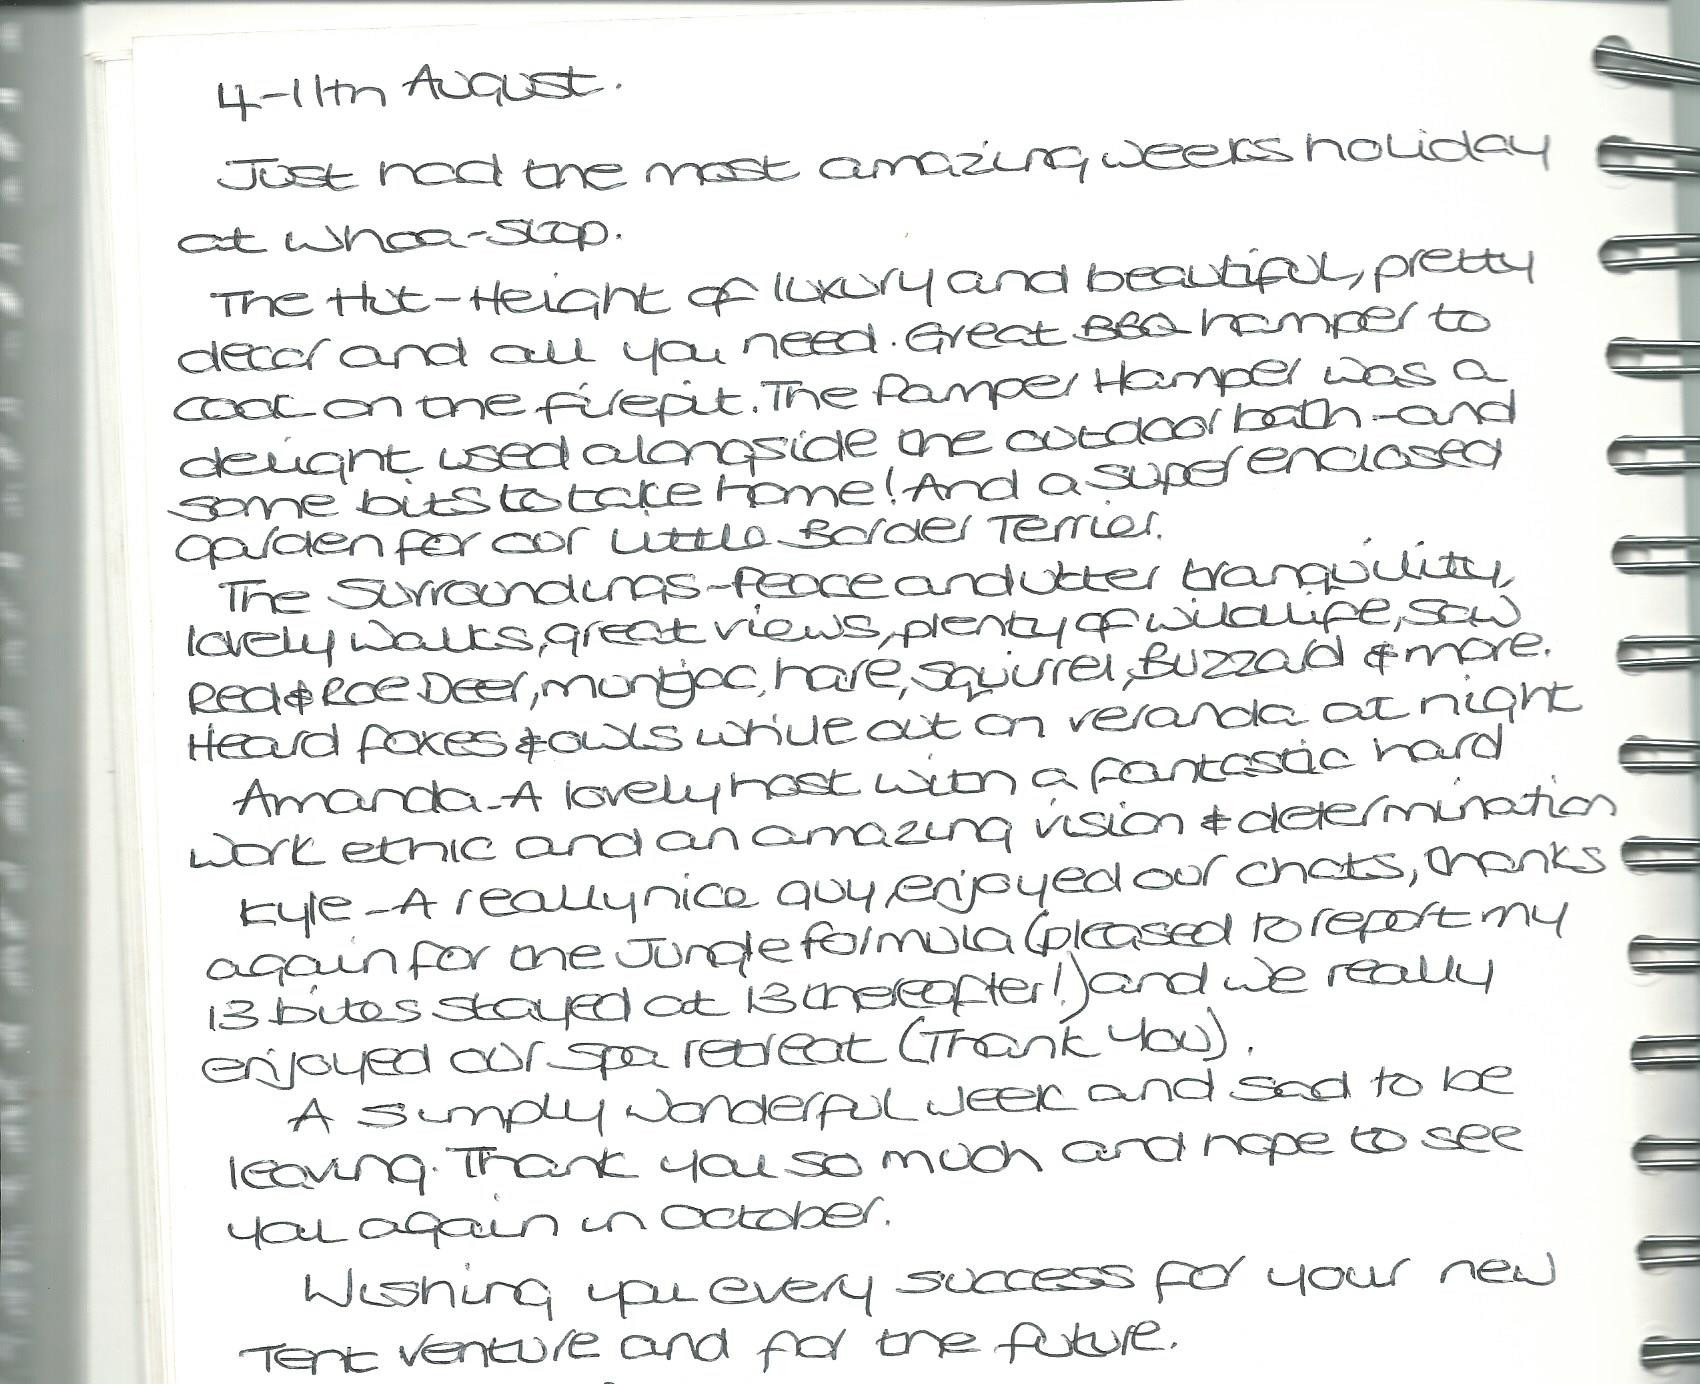 4-11th August.
Just had the most amazing weeks holiday
at Whoa-Stop.
The Hut-Height of luxury and beautiful, pretty
decor and all you need. Great BBQ hamper to
cook on the firepit. The Pamper Hamper was a
delight used alongside the outdoor bath-and
some bits to take home! And a super enclosed
garden for our Little Border Terrier.
The Surroundings-Peace and utter tranquility,
lovely walks, great views, plenty of wildlife, saw
Red & Roe Deer, muntjac, hare, squirrel, Buzzard & more.
Heard foxes & owls while out on veranda at night
Amanda-A lovely host with a fantastic hard
work ethic and an amazing vision & determination
Kyle-A really nice guy, enjoyed our chats, thanks
again for the Jungle formula (pleased to report my
13 bites stayed at 13 thereafter!) and we really
enjoyed our spa retreat (Thank You).
A simply wonderful week and sad to be
leaving. Thank you so much and hope to see
you again in October.
Wishing you every success for your new
Tent venture and for the future.